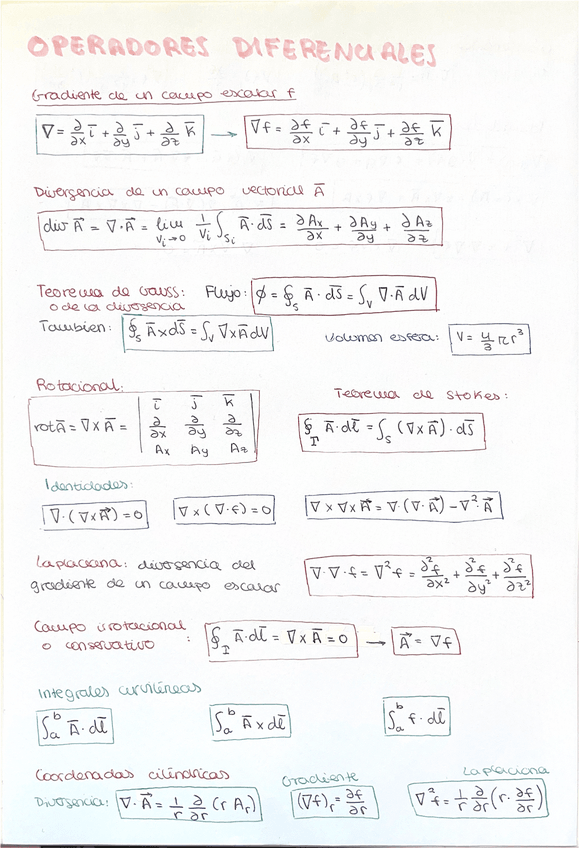 OPERADORES DIFERENCIALES
Gradiente de un campo escalar f
∇ = ∂/∂x i̅ + ∂/∂y j̅ + ∂/∂z k̅ → ∇f = ∂f/∂x i̅ + ∂f/∂y j̅ + ∂f/∂z k̅
Divergencia de un campo vectorial A̅
div A⃗ = ∇·A⃗ = lim Vi→0 1/Vi ∫Si A̅·dS̅ = ∂Ax/∂x + ∂Ay/∂y + ∂Az/∂z
Teorema de Gauss: Flujo: ϕ = ∮s A̅·dS̅ = ∫v ∇·A̅ dV
o de la divergencia
También: ∮s A̅×dS̅ = ∫v ∇×A̅ dV Volumen esfera: V = 4/3 π r³
Rotacional: Teorema de Stokes:
rot A̅ = ∇×A̅ = | i̅ j̅ k̅ |
| ∂/∂x ∂/∂y ∂/∂z |
| Ax Ay Az |
∮Γ A̅·dl̅ = ∫s (∇×A̅)·dS̅
Identidades:
∇·(∇×A⃗) = 0 ∇×(∇·f) = 0 ∇×∇×A⃗ = ∇·(∇·A⃗) − ∇²·A⃗
Laplaciana: divergencia del
gradiente de un campo escalar
∇·∇·f = ∇²f = ∂²f/∂x² + ∂²f/∂y² + ∂²f/∂z²
Campo irrotacional
o conservativo :
∮Γ A̅·dl̅ = ∇×A̅ = 0 → A⃗ = ∇f
Integrales curvilíneas
∫a^b A̅·dl̅ ∫a^b A̅×dl̅ ∫a^b f·dl̅
Coordenadas cilíndricas Gradiente Laplaciana
Divergencia: ∇·A⃗ = 1/r ∂/∂r (r Ar) (∇f)r = ∂f/∂r ∇²f = 1/r ∂/∂r (r·∂f/∂r)